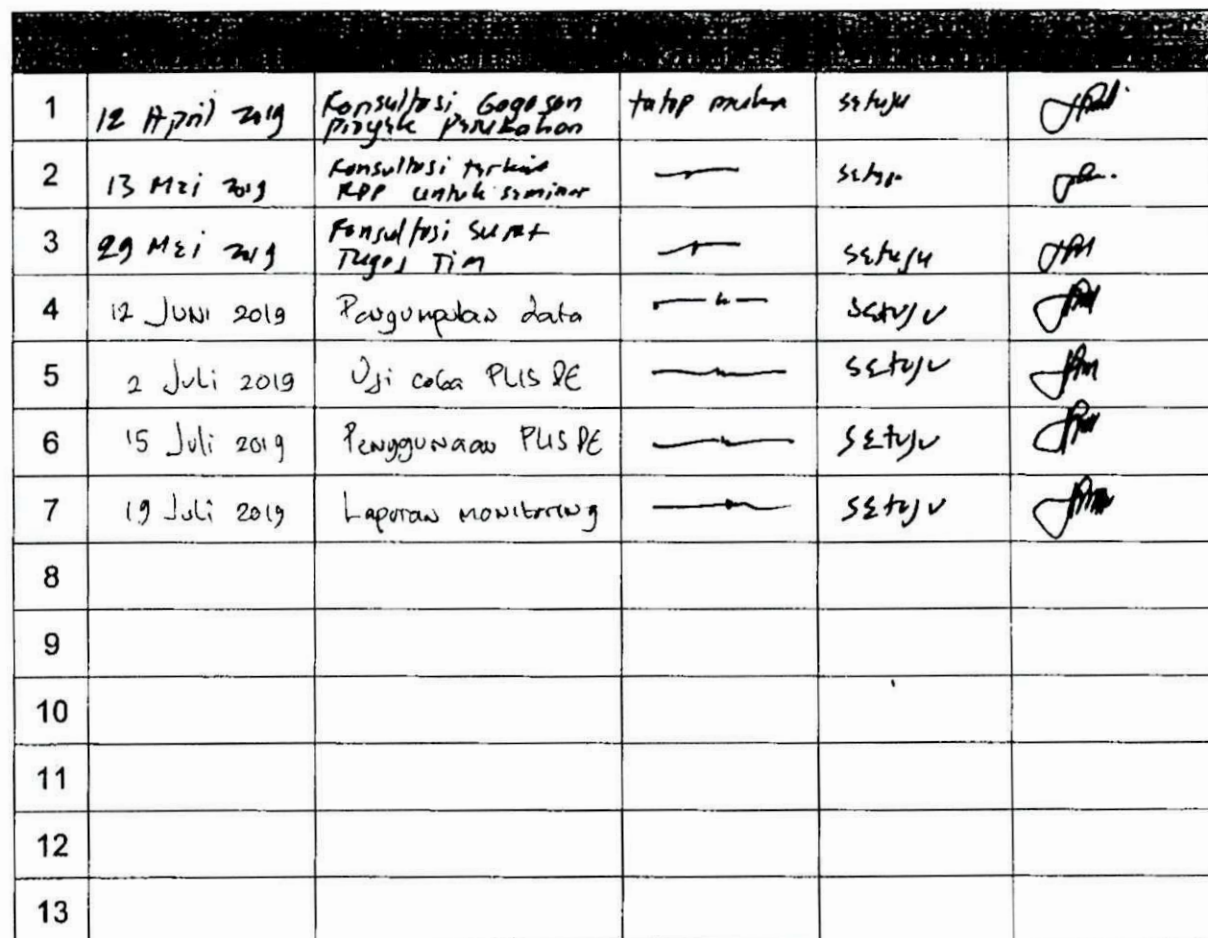 1 12 April 2019 Konsultasi Gagasan tatap muka setuju
proyek perubahan
2 13 Mei 2019 Konsultasi terkait setuju
RPP untuk seminar
3 29 Mei 2019 Konsultasi Surat setuju
Tugas Tim
4 12 Juni 2019 Pengumpulan data — u — setuju
5 2 Juli 2019 Uji coba PUSPE setuju
6 15 Juli 2019 Penggunaan PUSPE setuju
7 19 Juli 2019 Laporan monitoring setuju
8
9
10
11
12
13